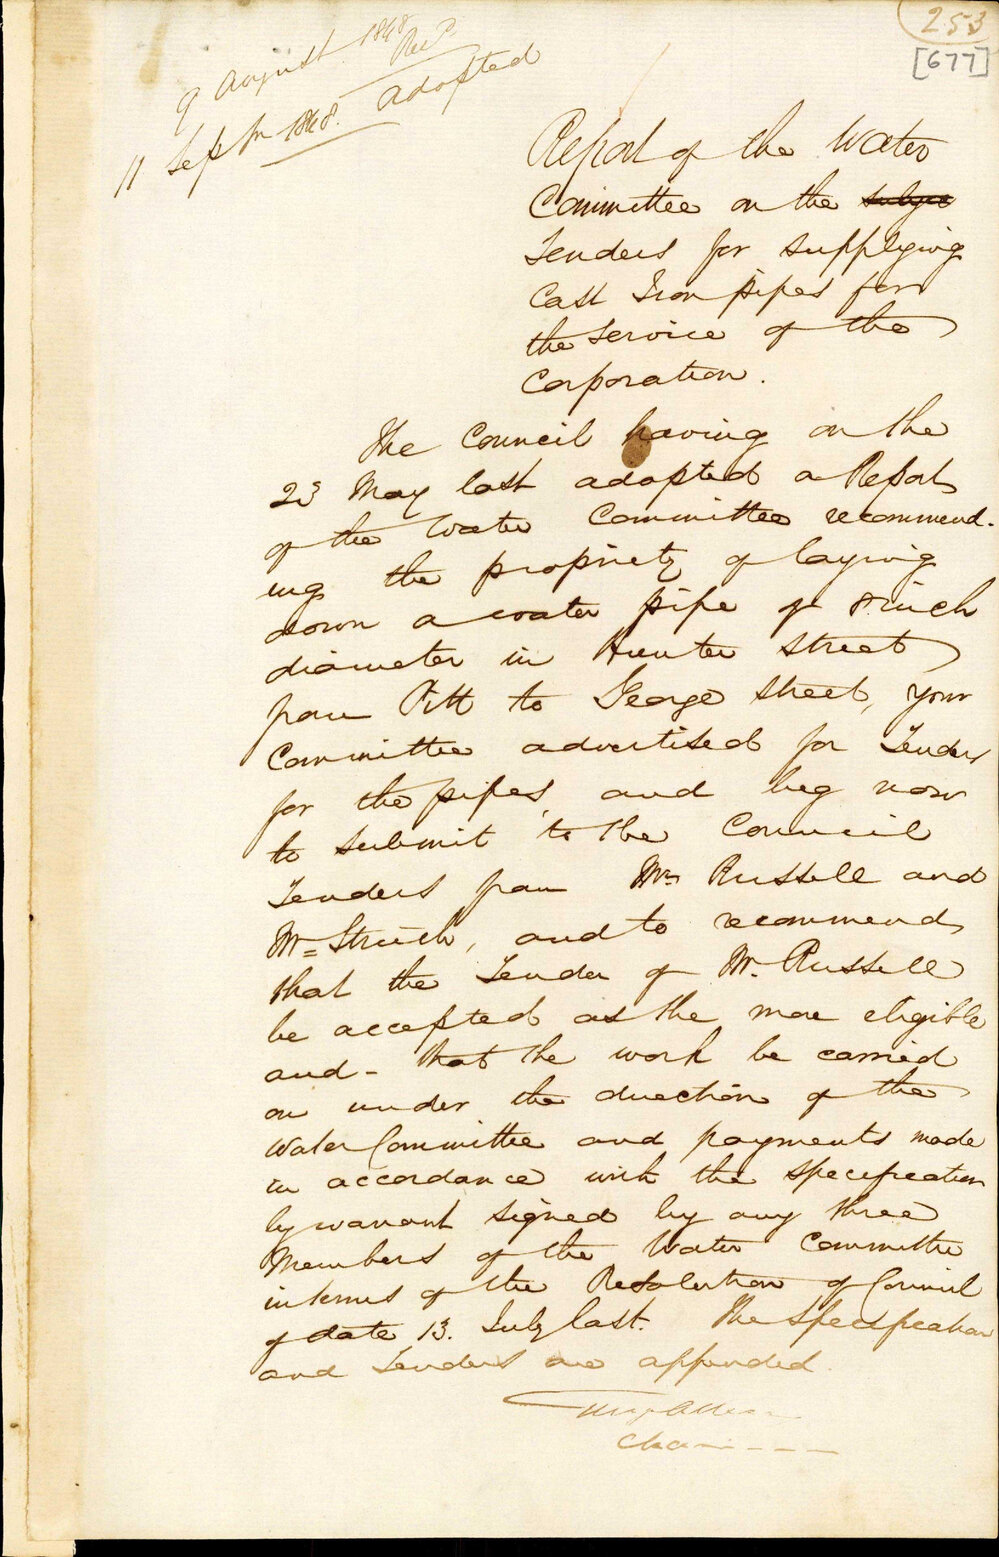 253
[677]
9 August 1848 Recd
11 Septr 1848. adopted
Report of the Water
Committee on the subject
Tenders for supplying
Cast Iron pipes for
the Service of the
Corporation.
The Council having on the
23 May last adopted a Report
of the Water Committee recommend-
ing the propriety of laying
down a water pipe of 8 inch
diameter in Hunter Street
from Pitt to George Street, your
Committee advertised for Tenders
for the pipes, and beg now
to submit to the Council
Tenders from Mr Russell and
Mr Struth, and to recommend
that the Tender of Mr. Russell
be accepted as the more eligible
and - that the work be carried
on under the direction of the
Water Committee and payments made
in accordance with the specification
by warrant signed by any three
Members of the Water Committee
in terms of the Resolution of Council
of date 13. July last. The Specification
and Tenders are appended.
Allen
Chair